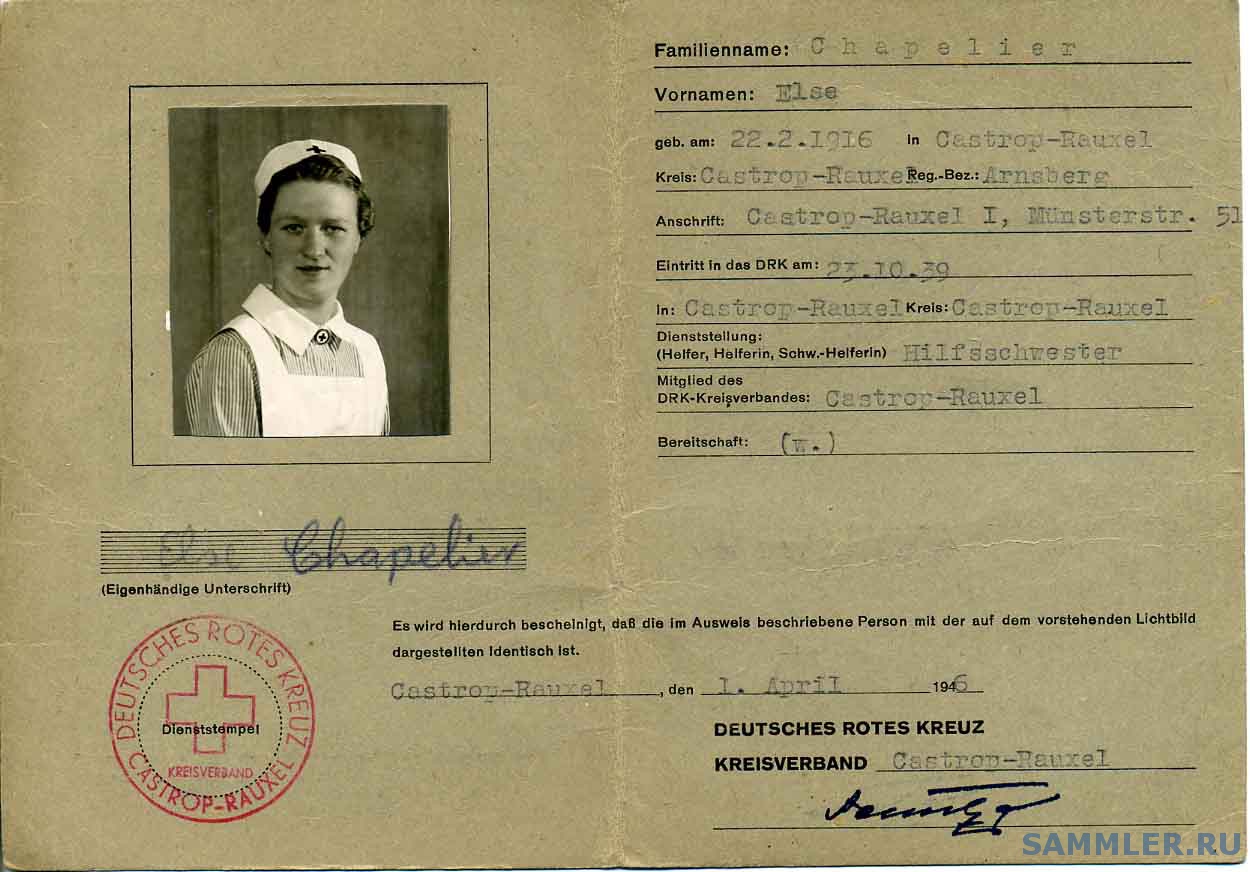 Familienname: Chapelier
Vornamen: Else
geb. am: 22.2.1916 in Castrop-Rauxel
Kreis: Castrop-Rauxel Reg.-Bez.: Arnsberg
Anschrift: Castrop-Rauxel I, Münsterstr. 51
Eintritt in das DRK am: 23.10.39
in: Castrop-Rauxel Kreis: Castrop-Rauxel
Dienststellung:
(Helfer, Helferin, Schw.-Helferin) Hilfsschwester
Mitglied des
DRK-Kreisverbandes: Castrop-Rauxel
Bereitschaft: (w.)
Else Chapelier
(Eigenhändige Unterschrift)
Es wird hierdurch bescheinigt, daß die im Ausweis beschriebene Person mit der auf dem vorstehenden Lichtbild
dargestellten identisch ist.
Castrop-Rauxel, den 1. April 1946
DEUTSCHES ROTES KREUZ
KREISVERBAND Castrop-Rauxel
DEUTSCHES ROTES KREUZ
Dienststempel
KREISVERBAND
CASTROP-RAUXEL
SAMMLER.RU